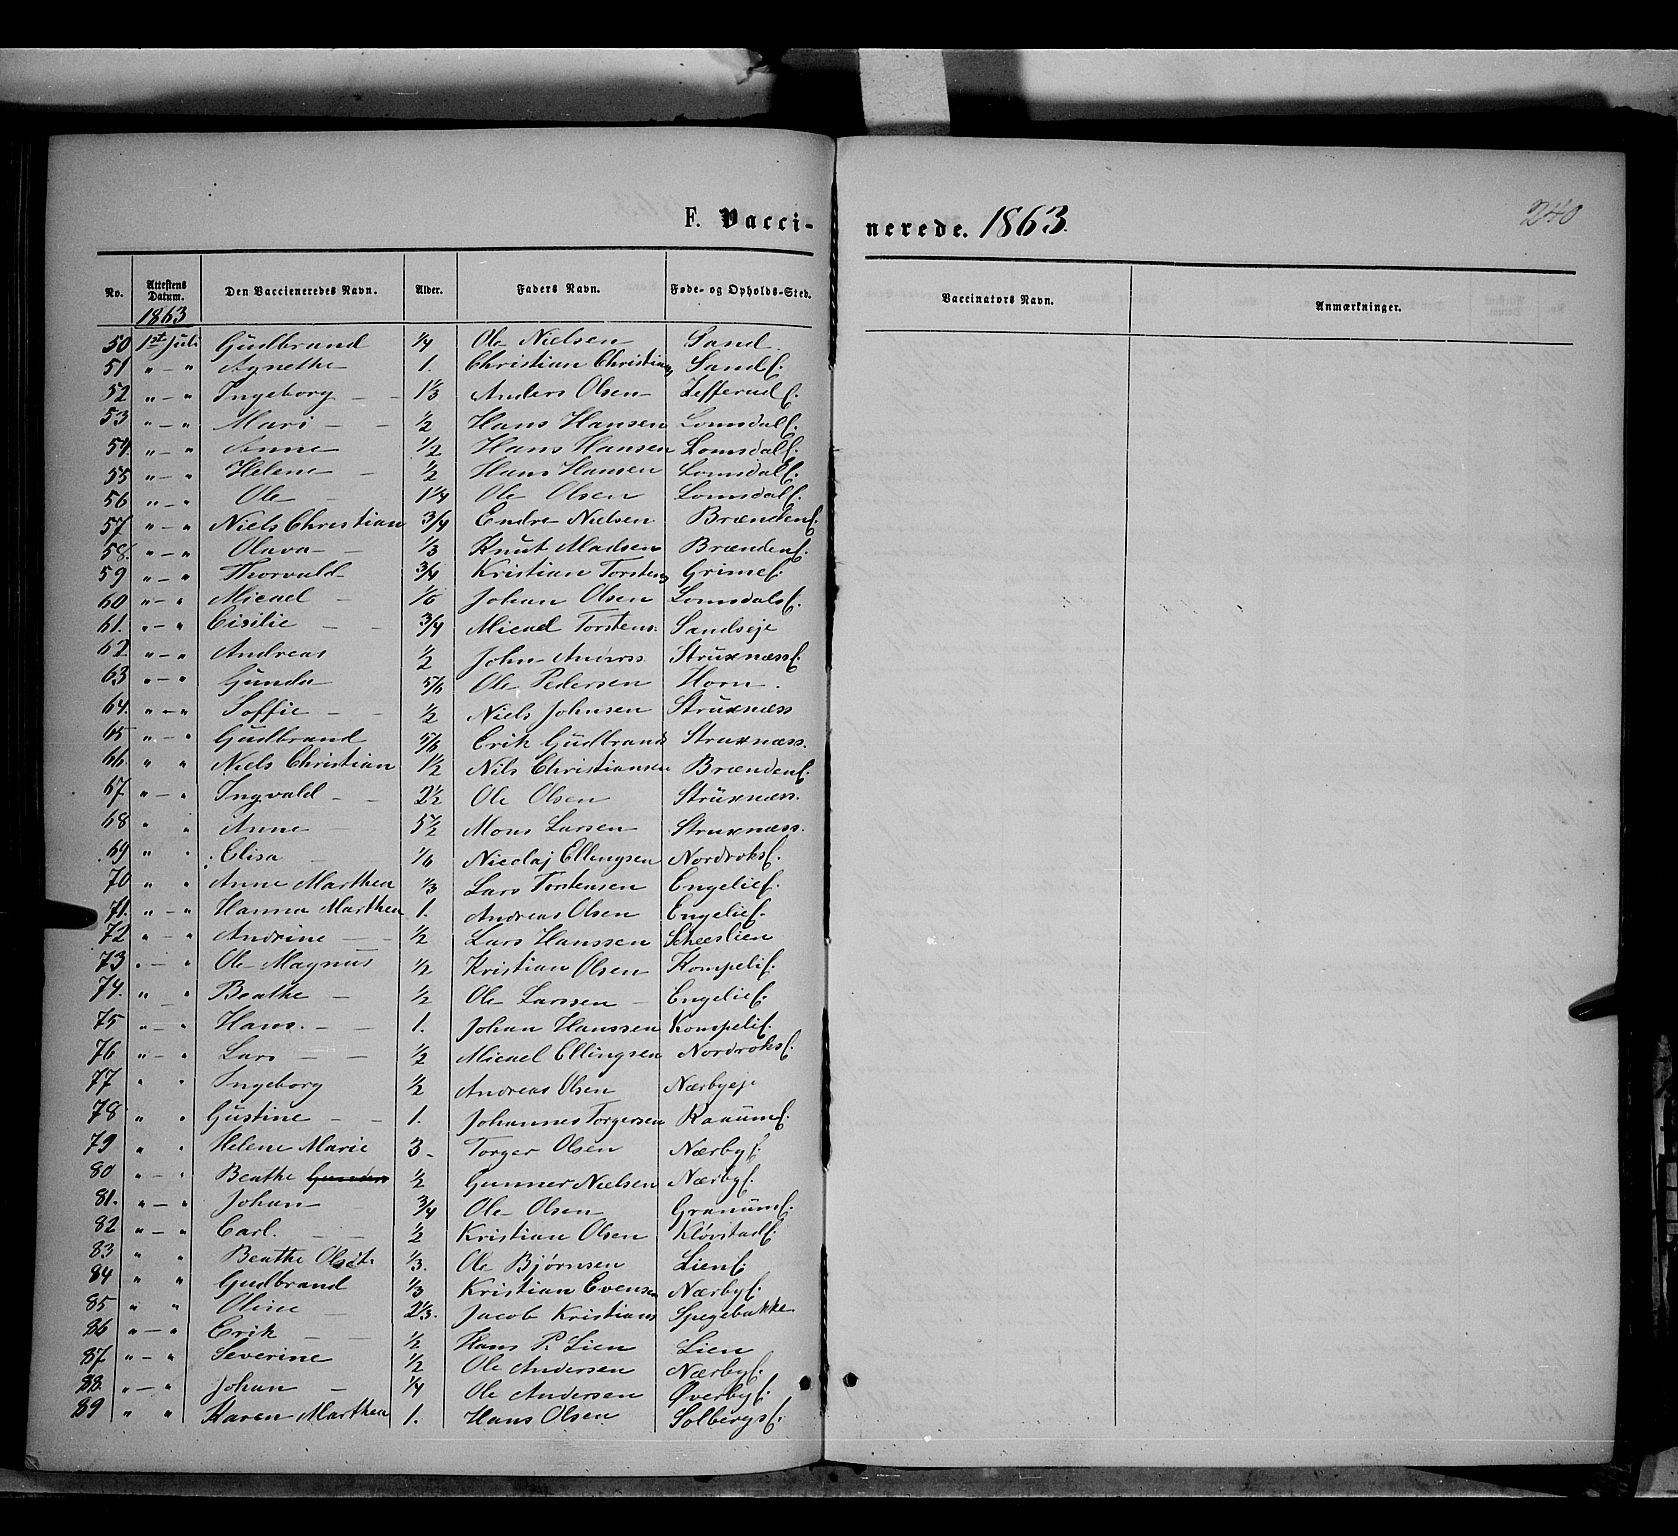 F. Vaccinerede. 1863.
240
No. Attestens Datum. Den Vaccieneredes Navn. Alder. Faders Navn. Føde- og Opholds-Sted. Vaccinators Navn. Anmærkninger.
1863
50 1st Juli Gudbrand 1/4 Ole Nielsen Sand
51 " - " Agnethe 1. Christian Christians Sandf.
52 " - " Ingeborg - - 1 1/3 Anders Olsen
53 " - " Mari - - 1/2 Hans Hansen Lomsdalf.
54. " - " Anne 1/2 Hans Hansen Lomsdalf.
55 " - " Helene - 1/2 Hans Hansen Lomsdalf.
56 " - " Ole - 1 1/4 Ole Olsen Lomsdalf.
57 " - " Niels Christian 3/4 Endre Nielsen Brændenf.
58. " - " Olava - - 1/3 Knut Madsen Brændenf.
59 " - " Thorvald - 3/4 Kristian Torstens Grimef.
60 " - " Micael - 1/6 Johan Olsen Lomsdalsf.
61. " - " Cisilie - - 3/4 Micael Torstens. Sandseje
62 " - " Andreas 1/2 John Anderss. Struxnæssf.
63 " - " Gunda 5/6 Ole Pedersen Horn.
64. " - " Soffie - - 1/2 Niels Johnsen Struxnæss
65 " - " Gudbrand 5/6 Erik Gudbrands Struxnæss.
66. " " Niels Christian 1 1/2 Nils Christiansen Brændenf.
67. " - " Ingvald - - 2 1/2 Ole Olsen Struxnæss.
68 " " Anne - 5 1/2 Mons Larsen Struxnæss.
69 " " Elisa - 1/6 Nicolaj Ellingsen Nordroksf.
70 " " Anne Marthea 1/3 Lars Torstensen Engelief.
71. " - " Hanna Marthea 1. Andreas Olsen Engelief.
72 " - " Andrine - - 1/2 Lars Hanssen
73 " - " Ole Magnus 1/2 Kristian Olsen Kompelif.
74. " " Beathe - 1/2 Ole Larssen - Engelief.
75 " - " Hans. - - 1. Johan Hanssen Kompelif.
76 " - " Lars - - 1/2 Micael Ellingsen Nordroksf.
77 " " Ingeborg 1/2 Andreas Olsen Nærbyeje
78 " " Gustine - - 1. Johannes Torgersen Raaumf.
79 " " Helene Marie 3 - Torger Olsen Nærbyf.
80 " - " Beathe 1/2 Gunner Nielsen Nærbyf.
81. " - " Johan - 3/4 Ole Olsen Granumf.
82 " - " Carl. - - 1/2 Kristian Olsen Kløvstadf.
83 " " Beathe Olset. 1/3. Ole Bjørnsen Lienf.
84 " " Gudbrand 1/3 Kristian Evensen Nærbyf.
85 " " Oline - 2 1/3. Jacob Kristians Spegebakke
86 " - " Erik - - 1/2 Hans P. Lien Lien
87 " - " Severine 1/2 Ole Andersen Nærbyf.
88. " - " Johan - 1/4 Ole Andersen Øverbyf.
89 " " Karen Marthea 1. Hans Olsen Solbergsf.